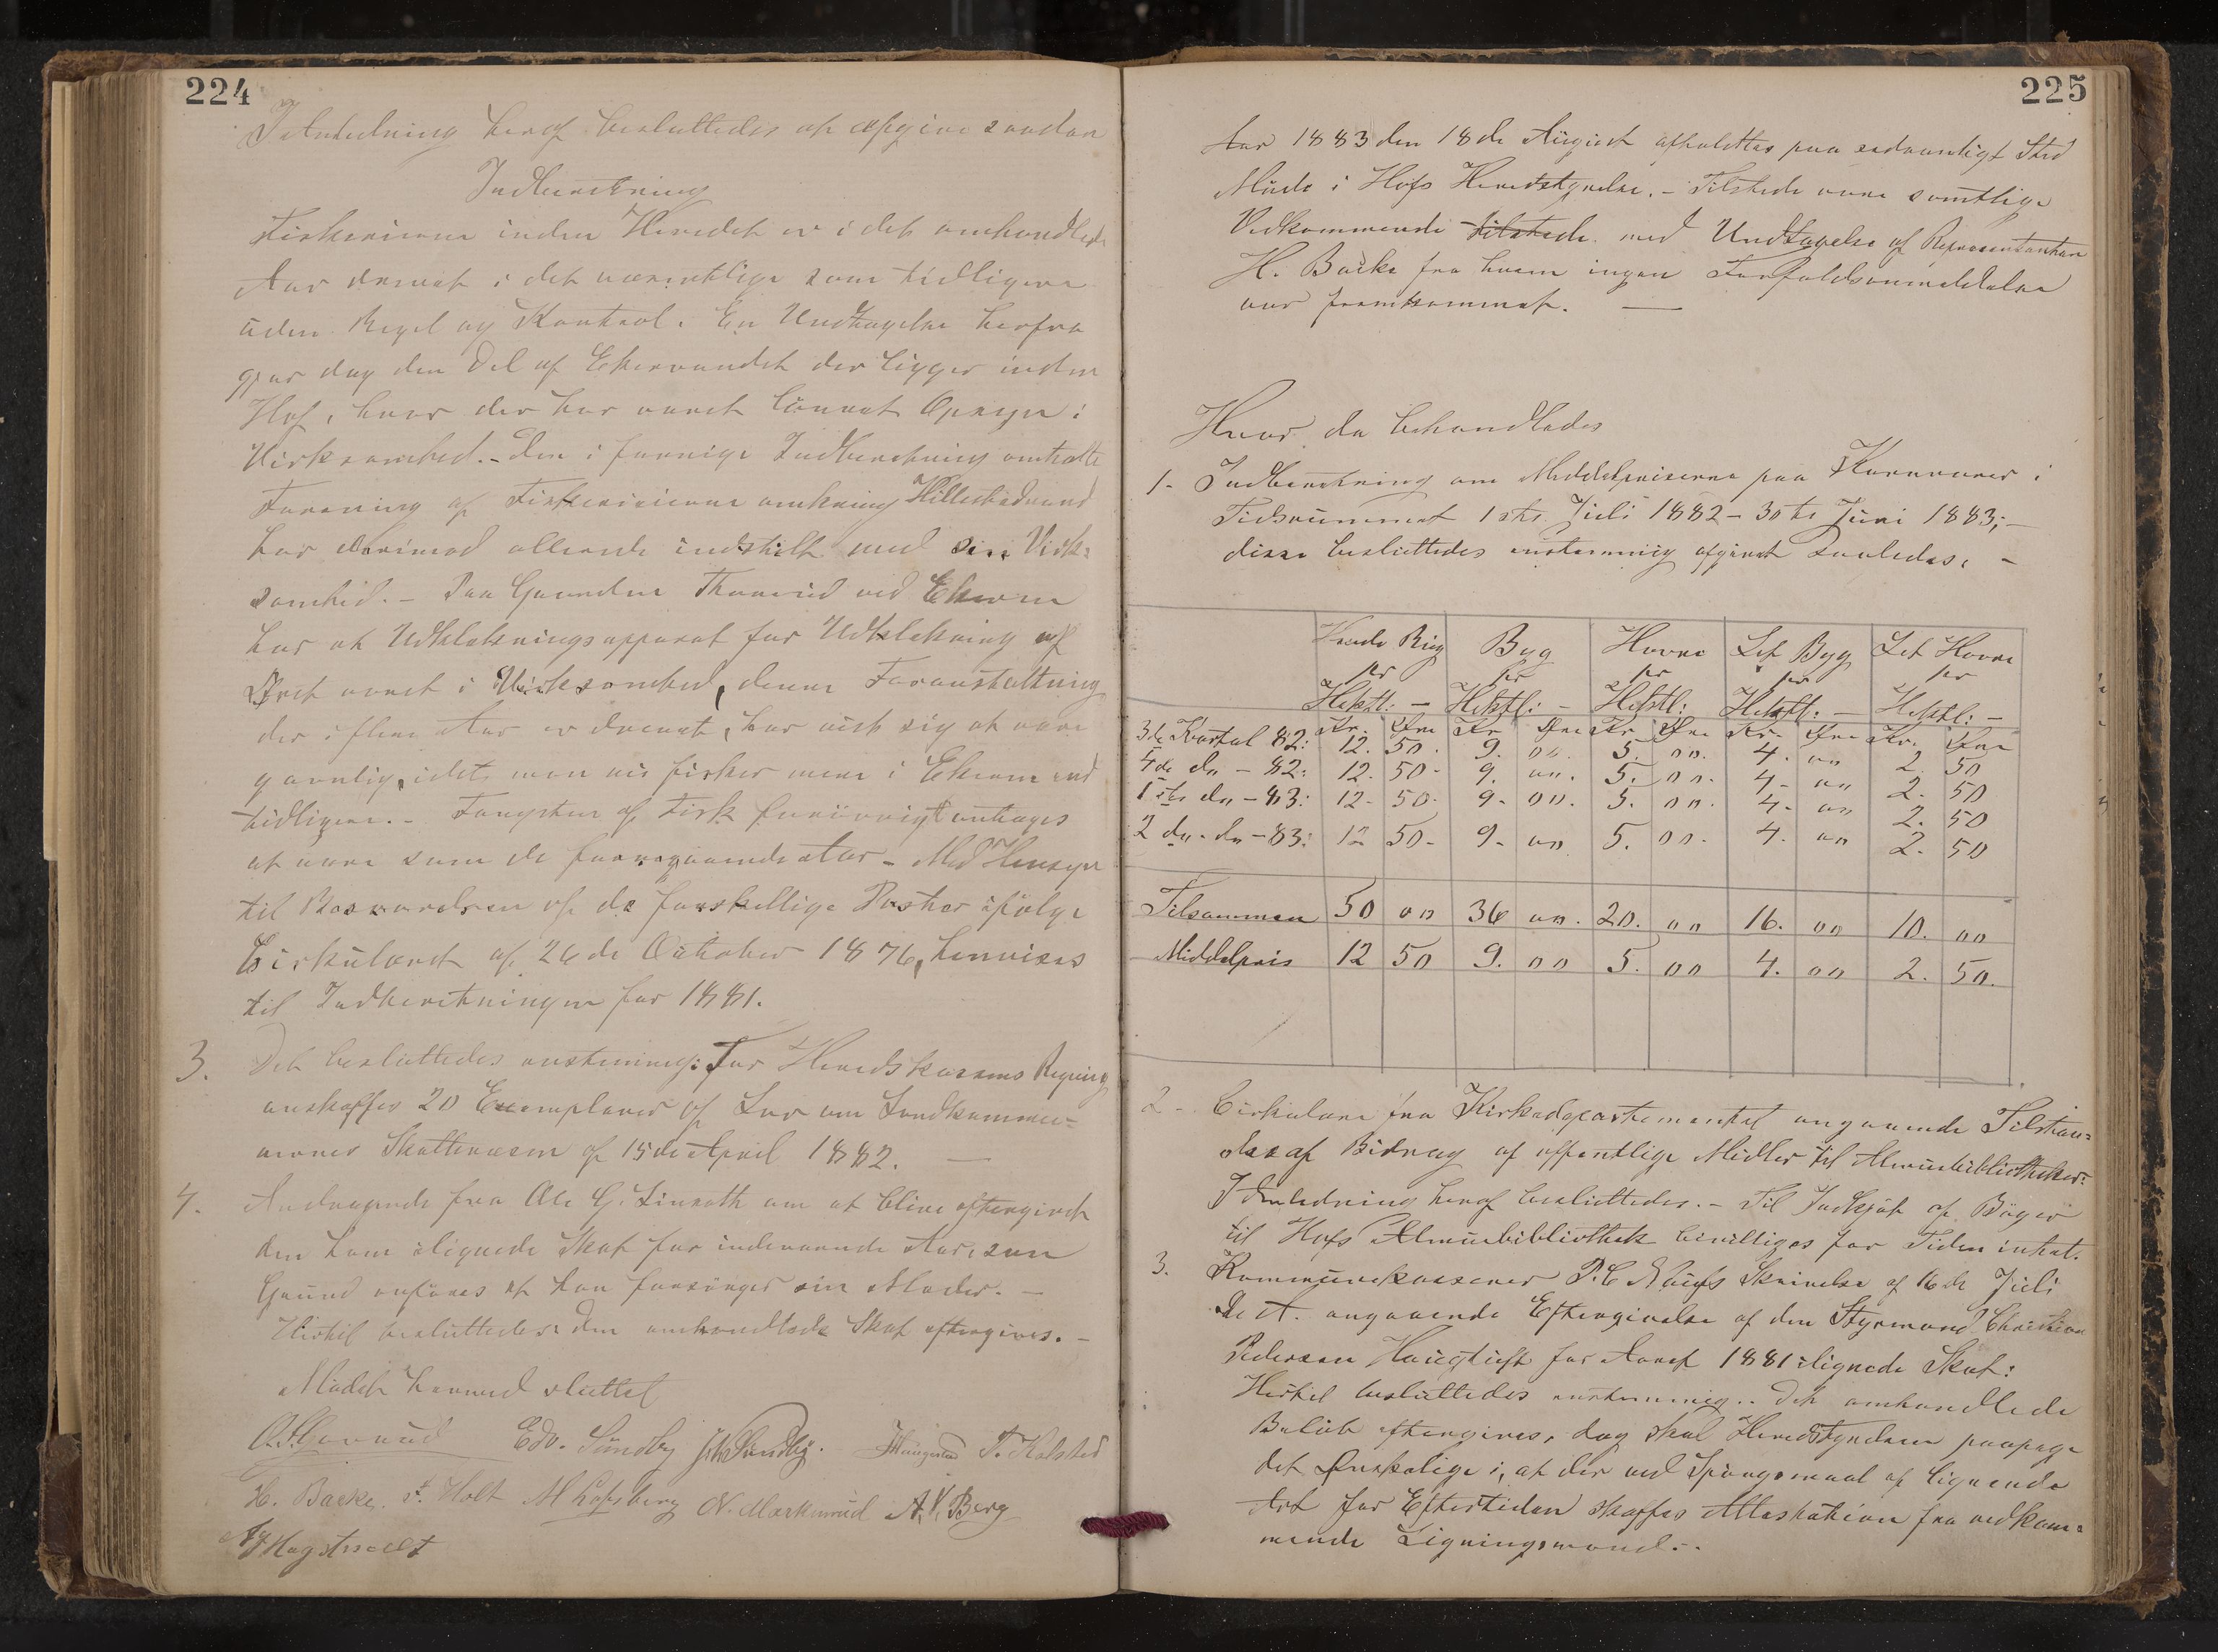 224
I Anledning heraf besluttedes at afgive saadan
Indberetning
Fiskerierne inden Heredet er i det omhandlede
Aar drevet i det væsentlige som tidligere
uden Regel og Kontrol. En Undtagelse herfra
gjør dog den Del af Ekervandet der ligger inden
Hof, hvor der har været lønnet Opsyn i
Virksomhed. – Den i forrige Indberetning omtalte
Forening af Fiskerieierne omkring Hillestadvand
har derimod allerede indstillet med sin Virk=
somhed. – Paa Gaarden Thorrud ved Ekeren
har et Udklækningsapparat for Udklækning af
Ørret været i Virksomhed, denne Foranstaltning
der i flere Aar er drevet, har vist sig at være
gavnlig, idet man nu fisker mere i Ekeren end
tidligere. – Fangsten af Fisk forøvrigt antages
at være som de foregaaende Aar – Med Hensyn
til Besvarelsen af de forskellige Poster ifølge
Cirkulæret af 26de Oktober 1876, henvises
til Indberetningen for 1881.
3. Det besluttedes enstemmig: For Heredskassens Regning
anskaffes 20 Exemplarer af Lov om Landkommu=
nernes Skattevæsen af 15de April 1882. —
4. Andragende fra Ole G. Linnoth om at blive eftergivet
den ham ilignede Skat for indeværende Aar, som
Grund anføres at han forsørger sin Moder. –
Hertil besluttedes: den omhandlede Skat eftergives. –
Mødet hermed sluttet
Edv. Sundby T. Kolsted
H. Backe. Holt M Lofsberg N. Markerud A. K. Berg
225
Aar 1883 den 18de August afholdtes paa sædvanligt Sted
Møde i Hofs Heredstyrelse. – Tilstede vare samtlige
Vedkommende tilstede med Undtagelse af Repræsentanten
H. Backe fra hvem ingen Forfaldsanmeldelse
var fremkommet. —
Hvor da behandledes
1. Indberetning om Middelpriserne paa Kornvarer i
Tidsrummet 1ste Juli 1882 – 30te Juni 1883; –
disse besluttedes enstemmig afgivet saaledes. –
Rug Byg Havre Let Byg Let Havre
pr pr pr pr pr
Hektl: – Hektl: – Hektl: Hektl: – Hektl: –
Kr. Øre Kr Øre Kr. Øre Kr. Øre Kr. Øre
3de Kvartal 82: 12. 50. 9. 00. 5. 00. 4. 00 2. 50
4de do – 82: 12. 50 – 9. 00. 5. 00. 4. 00 2. 50
1ste do – 83: 12. 50. 9. 00. 5. 00. 4. 00 2. 50
2de do – 83: 12 50 – 9. 00 5. 00. 4. 00 2. 50
Tilsammen 50 00 36 00. 20. 00 16. 00 10. 00
Middelpris 12 50 9. 00 5. 00 4. 00 2. 50.
2 – Cirkulære fra Kirkedepartementet angaaende Tilstaa=
else af Bidrag af offentlige Midler til Almuebibliotheker:
I Anledning heraf besluttedes. – Til Indkjøb af Bøger
til Hofs Almuebibliothek bevilliges for Tiden intet.
3. Kommunekasserer P. C. Skrivelse af 16de Juli
d. A. angaaende Eftergivelse af den Styrmand Christian
Pedersen Haugtuft for Aaret 1881 ilignede Skat:
Hertil besluttedes enstemmig. – Det omhandlede
Beløb eftergives, dog skal Heredstyrelsen paapege
det ønskelige i, at der ved Spørgsmaal af lignende
Art for Eftertiden skaffes Attestation fra vedkom=
mende Ligningsmænd. –